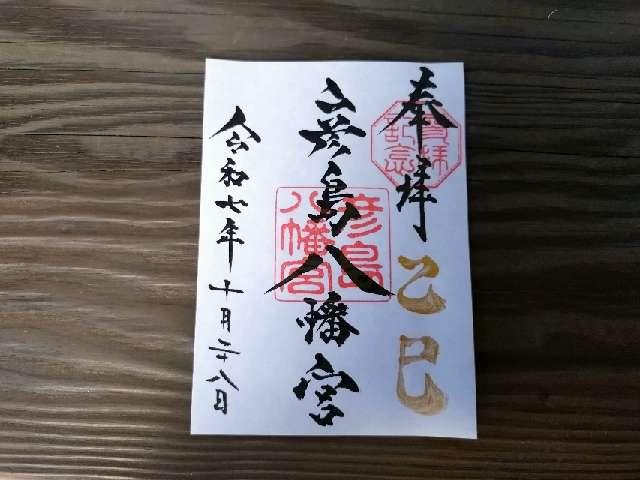 奉拝
乙巳
参拝
記念
彦島八幡宮
彦島
八幡宮
令和七年十月二十八日